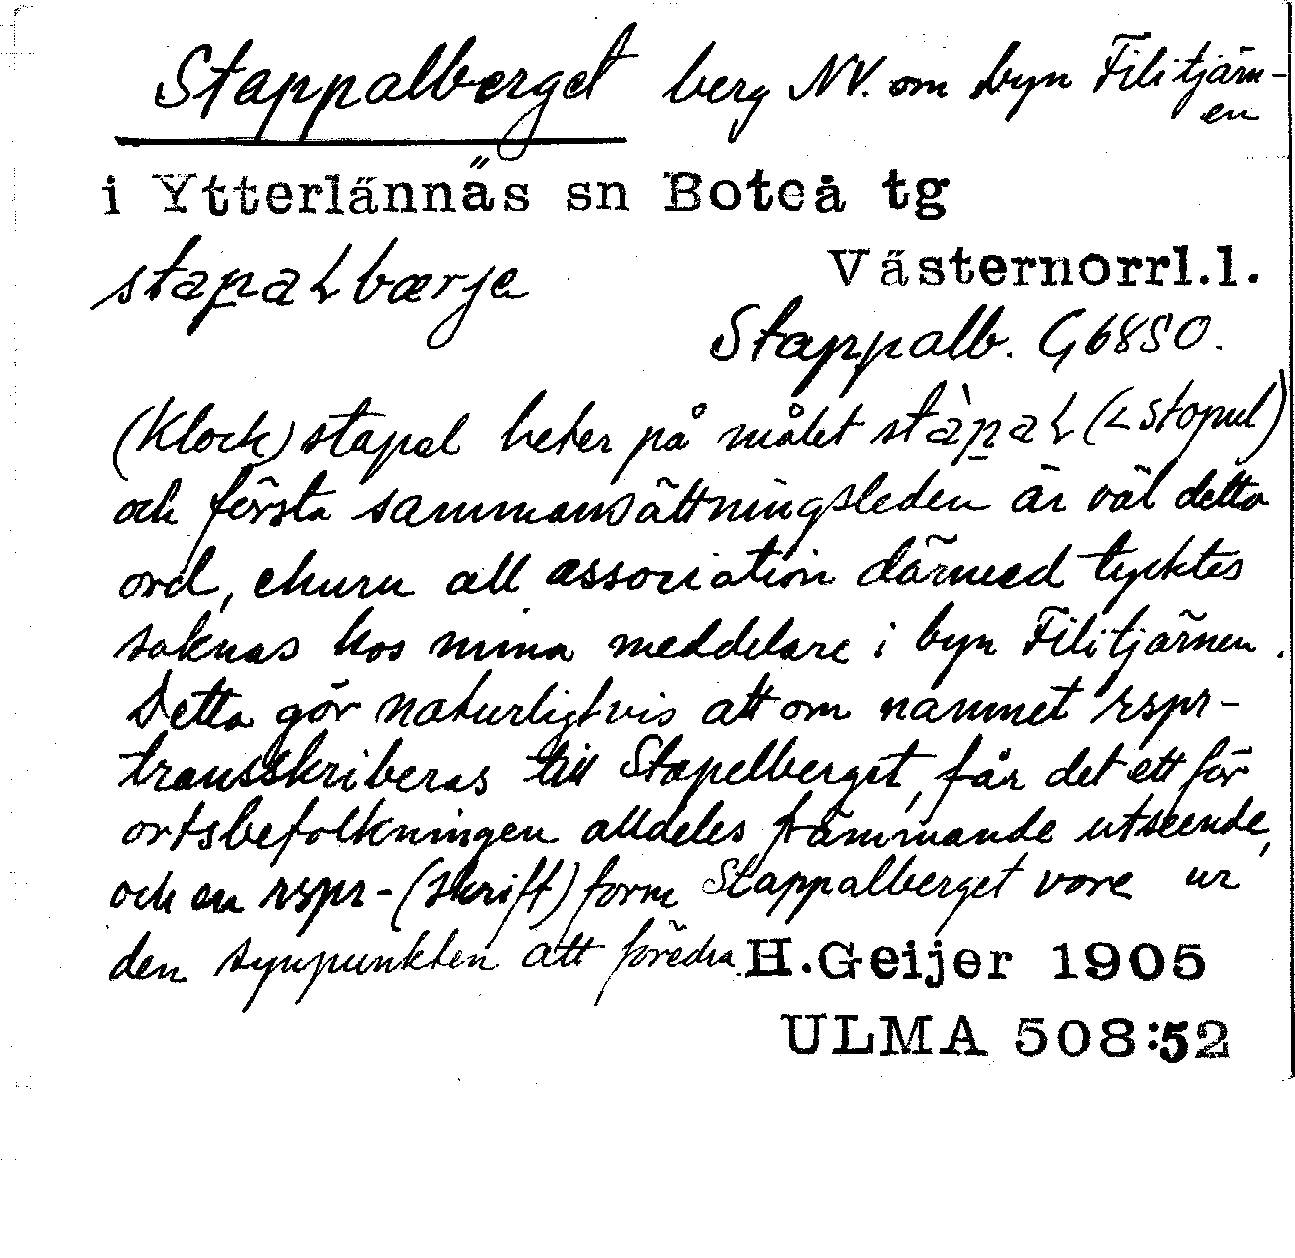 Stappalberget berg NV. om byn Filitjärn-
en
i Ytterlännäs sn Boteå tg
stapaLbærje Västernorrl.l.
Stappalb. G6850.
(Klock)stapel heter på målet stàpaL (< stopul)
och första sammansättningsleden är väl detta
ord, churu all association därmed tycktes
saknas hos mina meddelare i byn Filitjärnen.
Detta gör naturligtvis att om namnet rspr-
transskriberas till Stapelberget, får det ett för
ortsbefolkningen alldeles främmande utseende,
och en rspr-(skrift)form Stappalberget vore ur
den synpunkten att föredra. H.Geijer 1905
ULMA 508:52